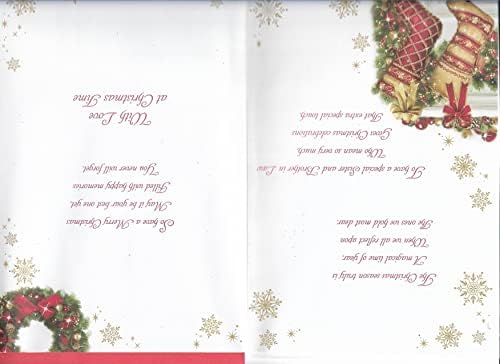 The Christmas season truly is
A magical time of year,
When we all reflect upon
The ones we hold most dear.
To have a special Sister and Brother in Law
Who mean so very much,
Gives Christmas celebrations
That extra special touch.
So have a Merry Christmas
May it be your best one yet,
Filled with happy memories
You never will forget.
With Love
at Christmas Time